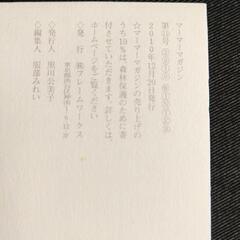 マーマーマガジン
2010年12月20日発行
☆マーマーマガジンの売り上げの
うち10%は、森林保護のために寄
付させていただきます。詳しくは、
ホームページをご覧ください
◇発 行 ㈱フレームワークス
◇発行人 黒川公美子
◇編集人 服部みれい